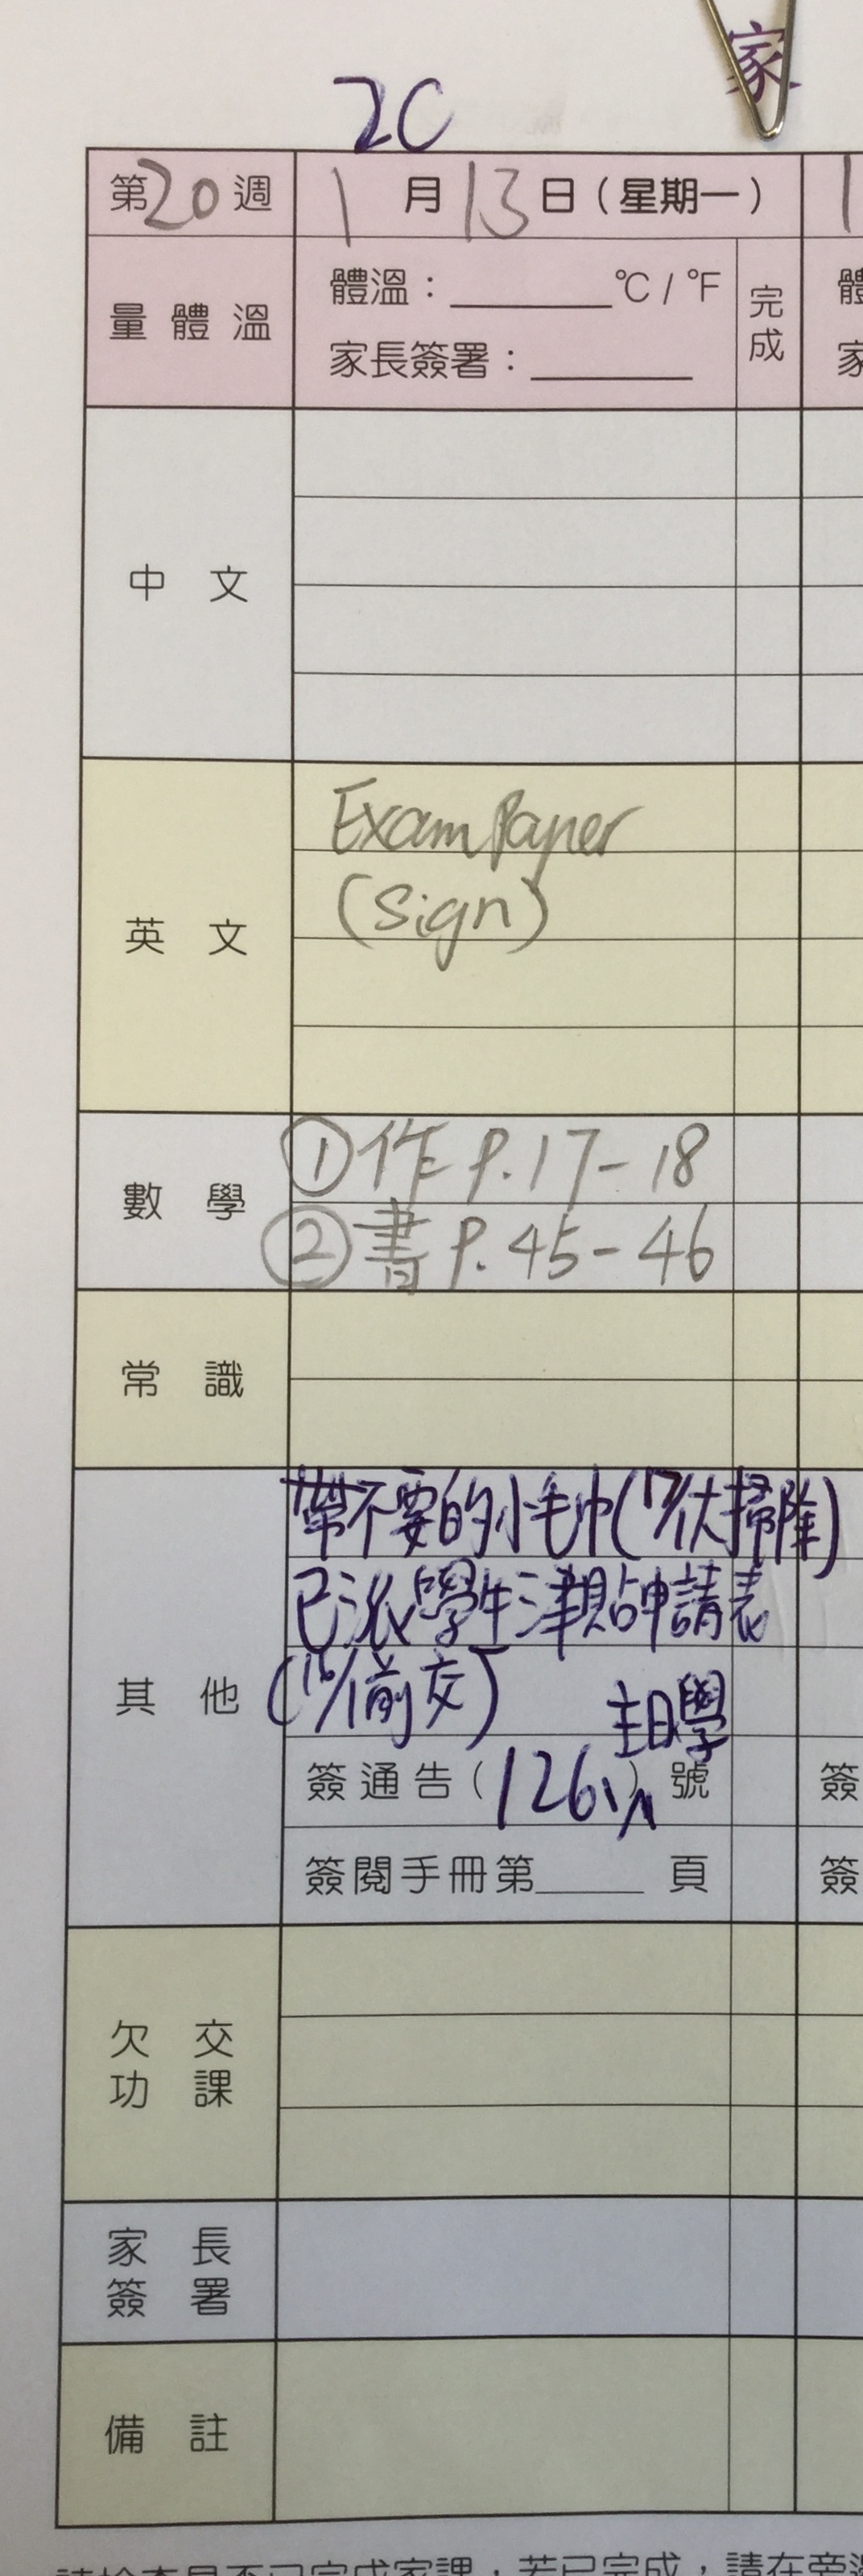 家
2C
第20週 1月13日(星期一) 1
量體溫 體溫：______°C / °F 完成 體
家長簽署：______ 家
中文
英文 Exam Paper
(Sign)
數學 ①作 P.17-18
②書 P.45-46
常識
其他 帶不要的小毛巾(17/1大掃除)
已派學生津貼申請表
(16/1前交)
主日學
簽通告(126、)號 簽
簽閱手冊第____頁 簽
欠交功課
家長簽署
備註
請檢查是否已完成家課，若已完成，請在旁